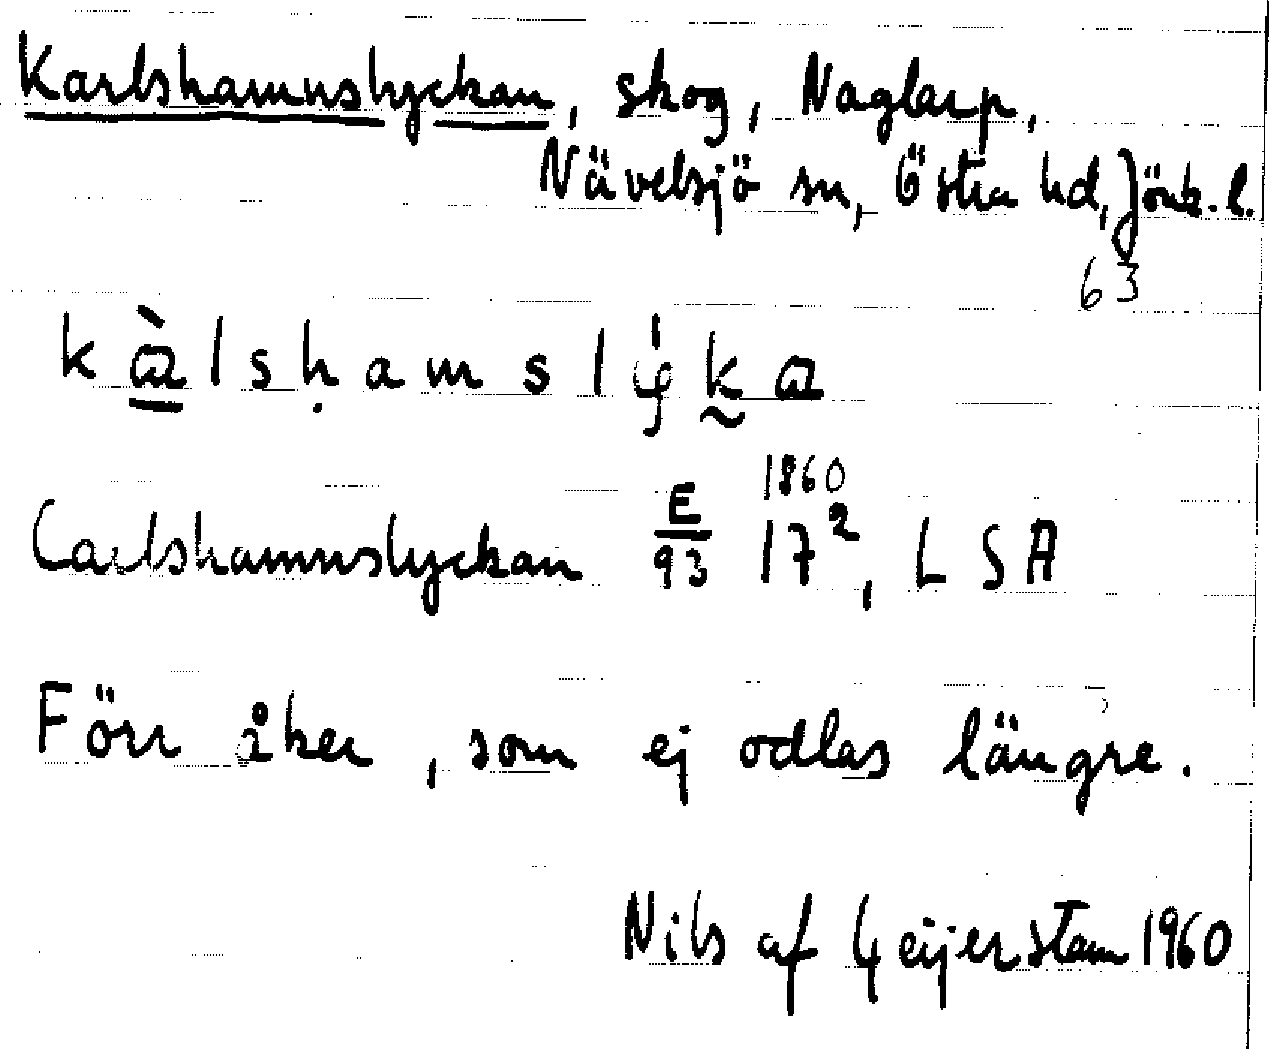 Karlshamnslyckan, skog, Naglarp,
Nävelsjö sn, Östra hd, Jönk. l.
63
Carlshamnslyckan E/93 17², LSA
1860
Förr åker, som ej odlas längre.
Nils af Geijerstam 1960